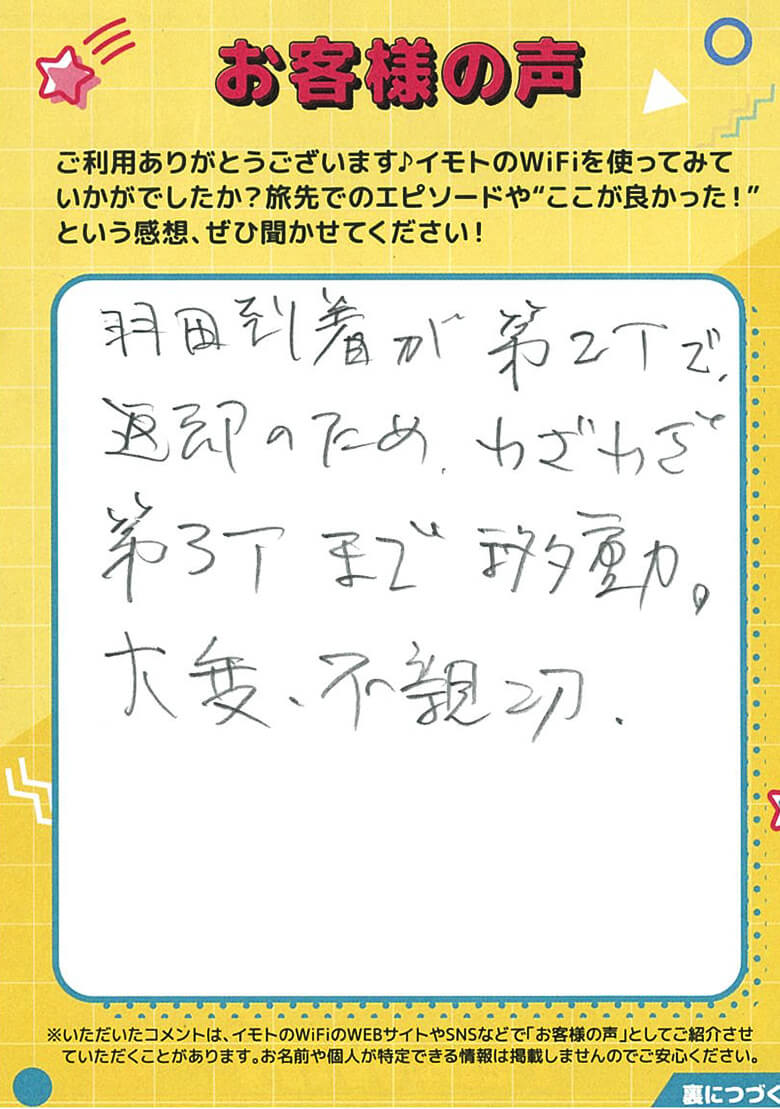 お客様の声
ご利用ありがとうございます♪イモトのWiFiを使ってみて
いかがでしたか？旅先でのエピソードや“ここが良かった！”
という感想、ぜひ聞かせてください！
羽田到着が第2Tで、
返却のため、わざわざ
第3Tまで移動。
大変、不親切．
※いただいたコメントは、イモトのWiFiのWEBサイトやSNSなどで「お客様の声」としてご紹介させ
ていただくことがあります。お名前や個人が特定できる情報は掲載しませんのでご安心ください。
裏につづく